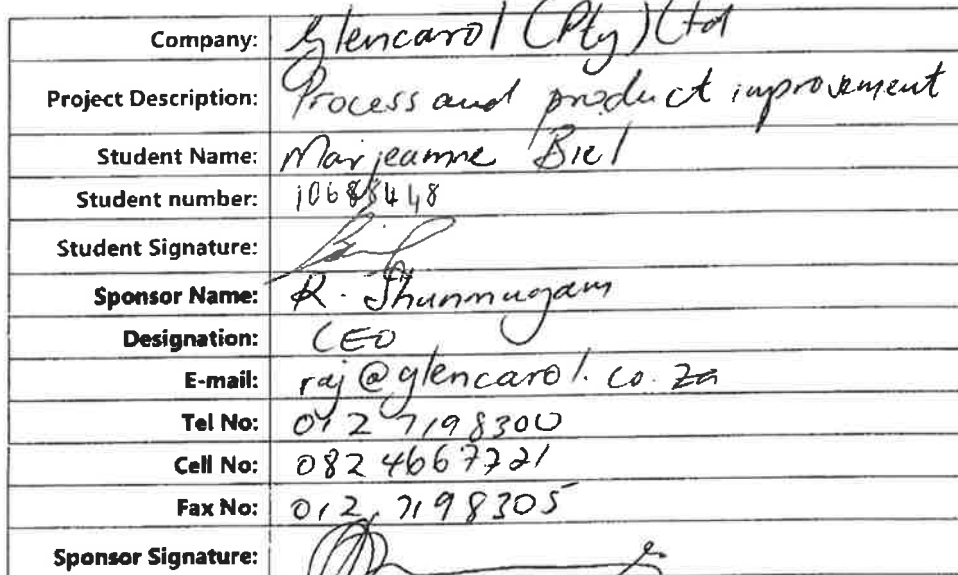 Company: Glencarol (Pty) Ltd
Project Description: Process and product improvement
Student Name: Marjeanne Biel
Student number: 10688448
Student Signature:
Sponsor Name: R. Shunmugam
Designation: CEO
E-mail: raj@glencarol.co.za
Tel No: 012 7198300
Cell No: 082 4667721
Fax No: 012 7198305
Sponsor Signature: